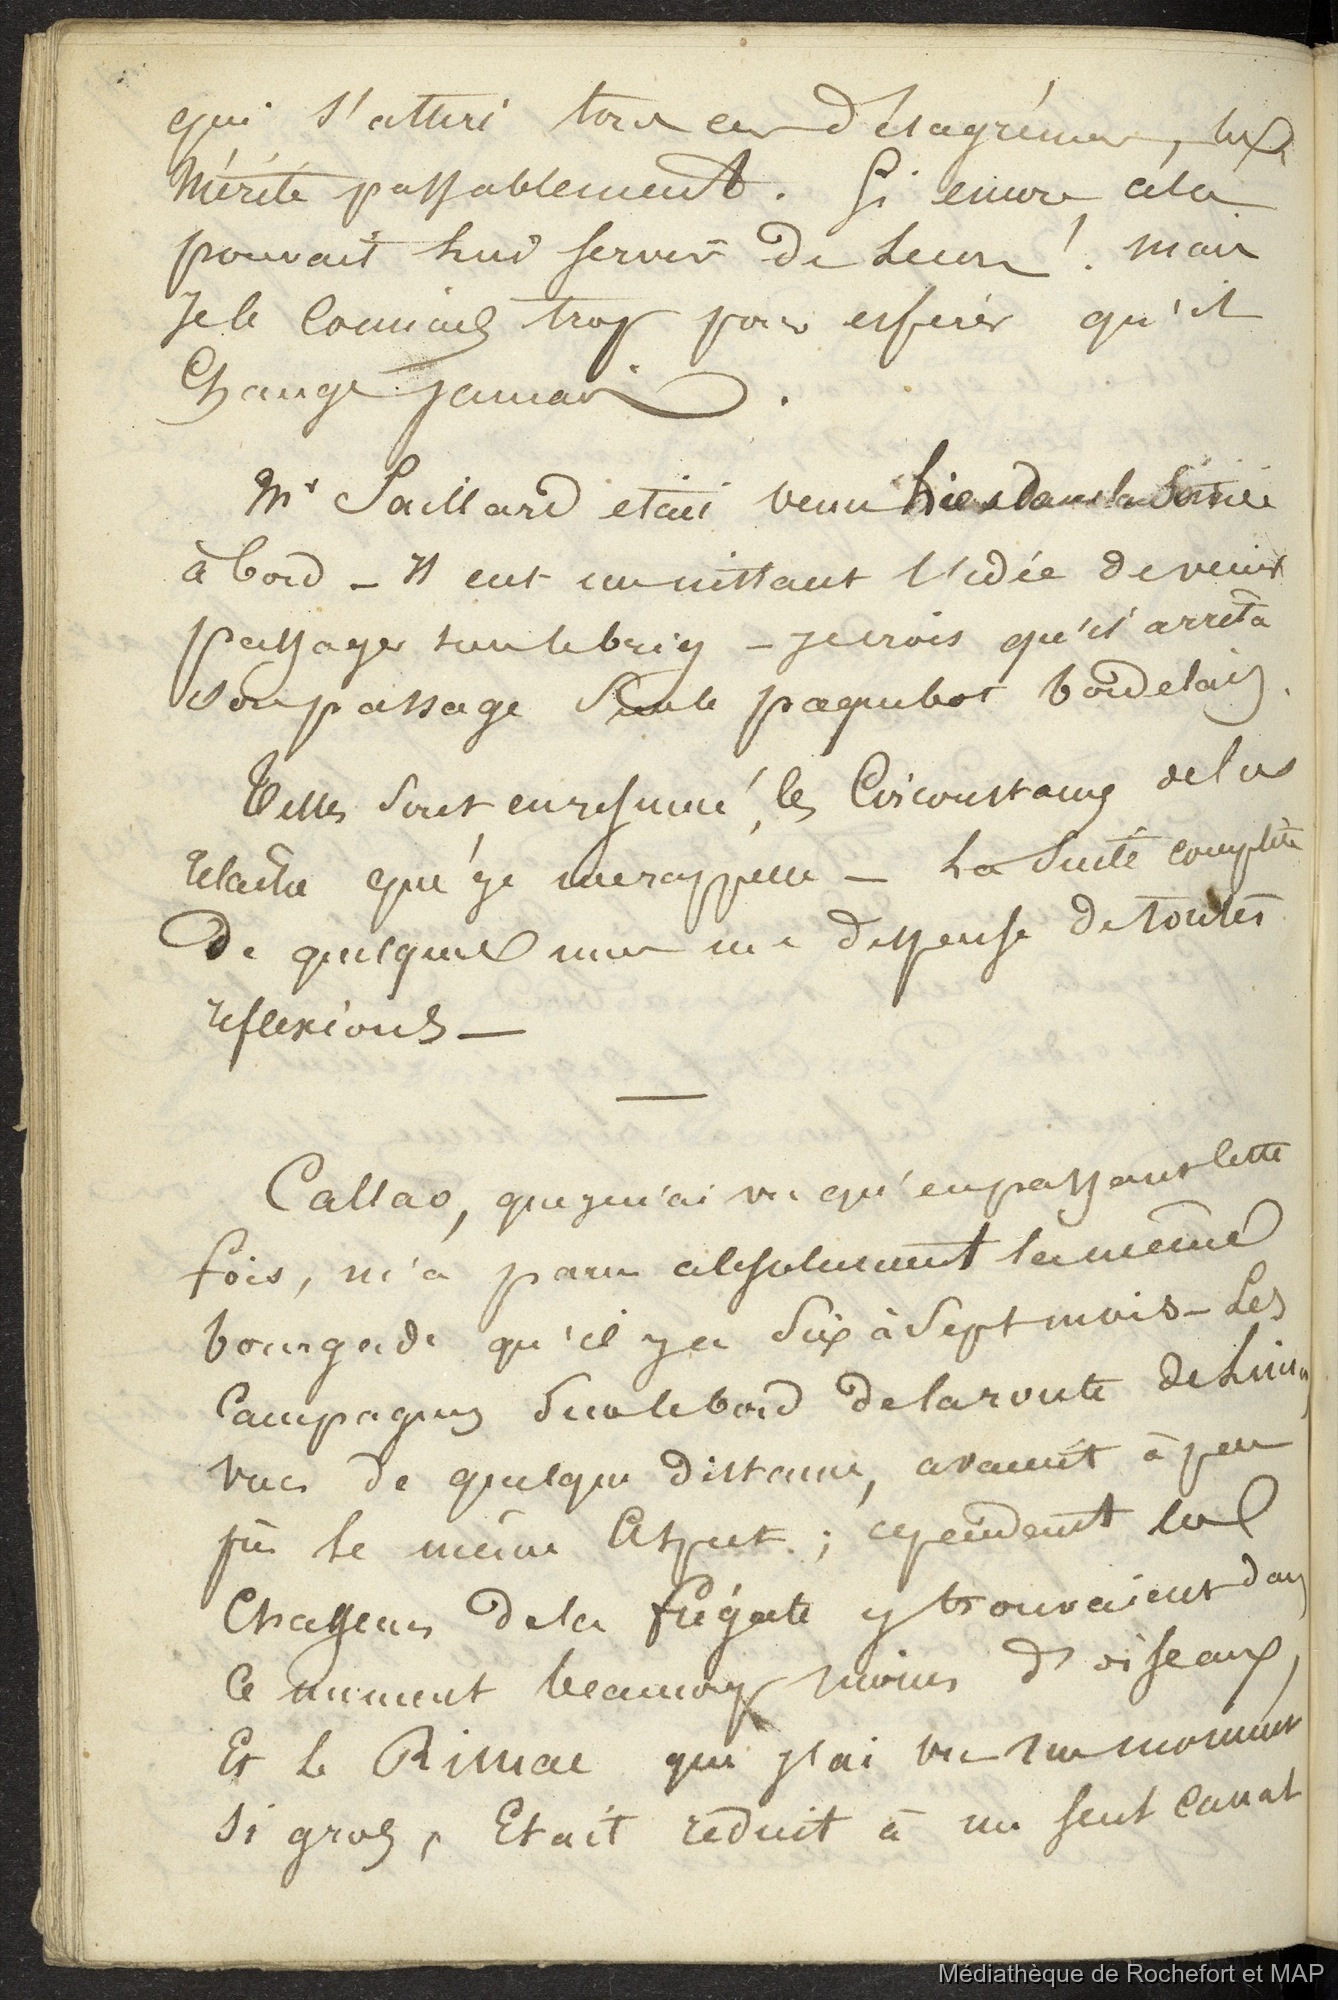 qui s'attire tous ces désagrémens, les
Mérite passablement. Si encore cela
pouvait lui servir de Lecon! mais
Je le Connais trop pour espérer qu'il
Change jamais.
Mr Saillard etait venu hier dans la Soirée
à bord _ Il eut un instant l'idée de venir
passager sur le brig _ Je crois qu'il arrêta
son passage Sur le paquebot bordelais.
Telles Sont en resumé, les Circonstances de la
relache que je me rappelle _ La Suite complète
De quelques mois me dispense de toutes
reflexions _
Callao, que je n'ai vu qu'en passant cette
fois, m'a paru absolument la même
bourgade qu'il y a Six à Sept mois _ Les
Campagnes Sur le bord de la route de Lima,
vues de quelque distance, avaient à peu
près le même Aspect; cependant les
Chasseurs de la frégate y trouvaient dans
Ce moment beaucoup moins d'oiseaux,
Et le Rimac que j'ai vu un moment
Si gros, Etait réduit à un seul Canal
Médiathèque de Rochefort et MAP